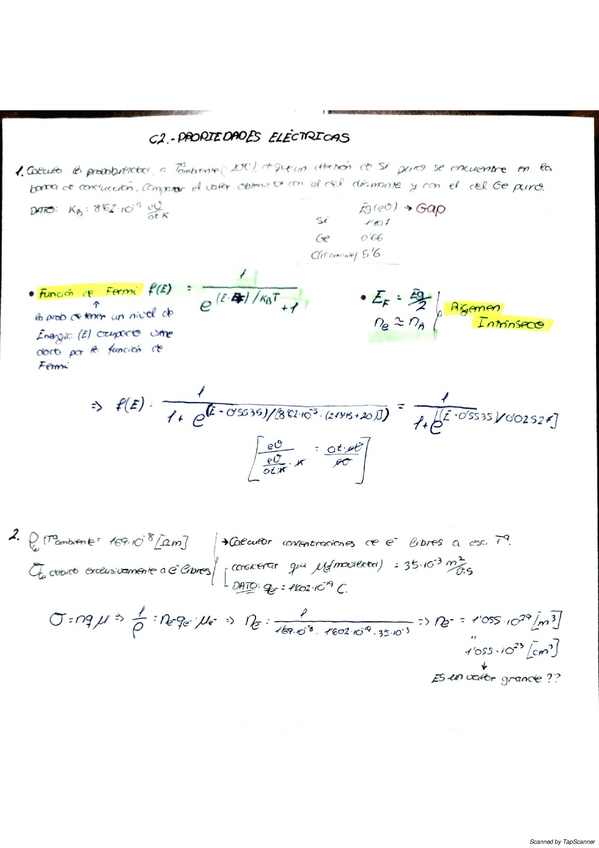 C2.-PROPIEDADES ELÉCTRICAS
1. Calcula la probabilidad, a Tªambiente (20ºC) de que un electrón de Si puro se encuentre en la
banda de conducción. Comparar el valor obtenido con el del diamante y con el del Ge puro.
DATO: KB: 8'62·10⁻⁵ eV/at·K
Eg(eV) → Gap
Si 1'107
Ge 0'66
C(diamante) 5'6
• Función de Fermi f(E) = 1 / e^(E-EF)/KBT + 1
la prob de tener un nivel de
Energía (E) ocupado viene
dado por la función de
Fermi
• EF = Eg/2
ne ≈ nA
Régimen
Intrínseco
⇒ f(E) = 1 / 1 + e^[(E-0'5535)/[8'62·10⁻⁵·(273'15+20)]] = 1 / 1 + e^[(E-0'5535)/0'02527]
[eV / eV/at·K · K = at·eV/eV]
2. ρ (Tªambiente = 1'69·10⁻⁸ [Ωm]
→ Calcular concentraciones de e⁻ libres a esa Tª.
σ debido exclusivamente a e⁻ libres
considerar que μ (movilidad) = 3'5·10⁻³ m²/V·s
DATO: qe = 1'602·10⁻¹⁹ C.
σ = nqμ ⇒ 1/ρ = ne·qe·μe ⇒ ne = 1 / 1'69·10⁻⁸·1'602·10⁻¹⁹·3'5·10⁻³ ⇒ ne⁻ = 1'055·10²⁹ [m³]
"
1'055·10²³ [cm³]
↓
ES un valor grande??
Scanned by TapScanner